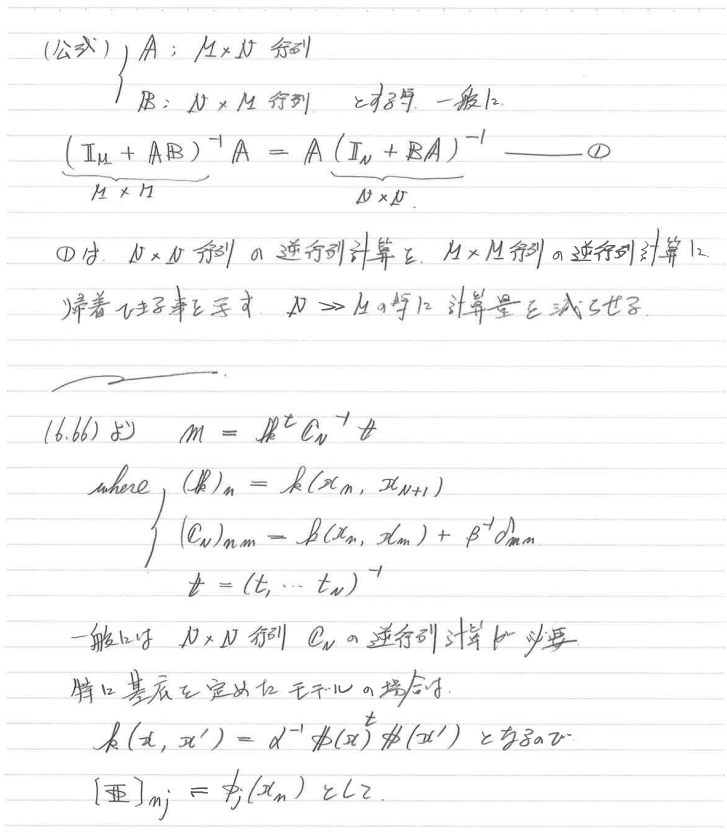 (公式) { 𝔸 ; M×N 行列
𝔹 ; N×M 行列 とする時 一般に
(𝕀_M + 𝔸𝔹)^{-1} 𝔸 = 𝔸 (𝕀_N + 𝔹𝔸)^{-1} —— ①
M×M N×N.
①は N×N 行列 の 逆行列計算を M×M行列 の 逆行列計算に
帰着できる事を示す N ≫ M の時に 計算量を 減らせる.
(6.66) より m = 𝕜^t ℂ_N^{-1} 𝕥
where { (𝕜)_n = k(x_n, x_{N+1})
(ℂ_N)_{nm} = k(x_n, x_m) + β^{-1} δ_{mn}
𝕥 = (t, … t_N)^{-1}
一般には N×N 行列 ℂ_N の 逆行列計算が 必要
特に 基底を 定めた モデル の 場合は.
k(x, x') = α^{-1} φ(x)^t φ(x') となるので
[Φ]_{nj} = φ_j(x_n) として.